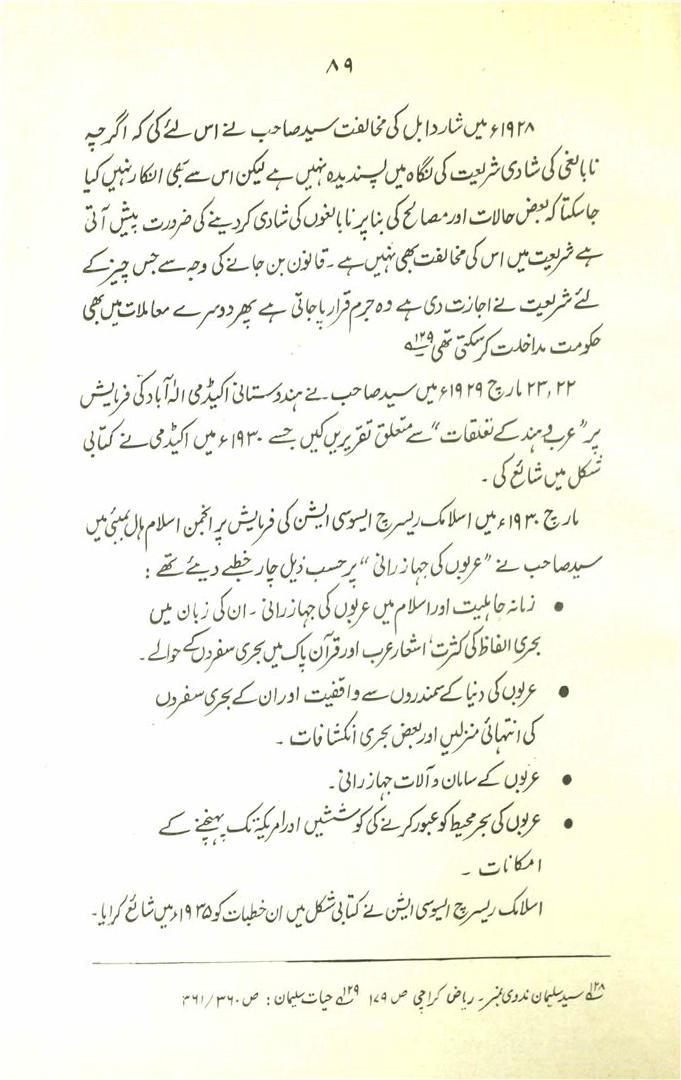 ۸۹
۱۹۲۸ء میں شاردابل کی مخالفت سید صاحب نے اس لئے کی کہ اگرچہ
نابالغی کی شادی شریعت کی نگاہ میں پسندیدہ نہیں ہے لیکن اس سے بھی انکار نہیں کیا
جاسکتا کہ بعض حالات اور مصالح کی بنا پر نابالغوں کی شادی کردینے کی ضرورت پیش آتی
ہے شریعت میں اس کی مخالفت بھی نہیں ہے ۔ قانون بن جانے کی وجہ سے جس چیز کے
لئے شریعت نے اجازت دی ہے وہ جرم قرار پاجاتی ہے پھر دوسرے معاملات میں بھی
حکومت مداخلت کرسکتی تھی ۱۲۹؎
۲۲، ۲۳ مارچ ۱۹۲۹ء میں سید صاحب نے ہندوستانی اکیڈمی الٰہ آباد کی فرمایش
پر ”عرب و ہند کے تعلقات“ سے متعلق تقریریں کیں جسے ۱۹۳۰ء میں اکیڈمی نے کتابی
شکل میں شائع کی ۔
مارچ ۱۹۳۰ء میں اسلامک ریسرچ ایسوسی ایشن کی فرمایش پر انجمن اسلام ہال بمبئی میں
سید صاحب نے ”عربوں کی جہازرانی“ پر حسب ذیل چار خطبے دیئے تھے :
● زمانہ جاہلیت اور اسلام میں عربوں کی جہازرانی ۔ ان کی زبان میں
بحری الفاظ کی کثرت، اشعار عرب اور قرآن پاک میں بحری سفروں کے حوالے ۔
● عربوں کی دنیا کے سمندروں سے واقفیت اور ان کے بحری سفروں
کی انتہائی منزلیں اور بعض بحری انکشافات ۔
● عربوں کے سامان و آلات جہازرانی ۔
● عربوں کی بحر محیط کو عبور کرنے کی کوششیں اور امریکہ تک پہنچنے کے
امکانات ۔
اسلامک ریسرچ ایسوسی ایشن نے کتابی شکل میں ان خطبات کو ۱۹۳۵ء میں شائع کرایا ۔
۱۲۸؎ سید سلیمان ندوی نمبر ۔ ریاض کراچی ص ۱۷۹ ۱۲۹؎ حیات سلیمان : ص ۳۶۰/۳۶۱